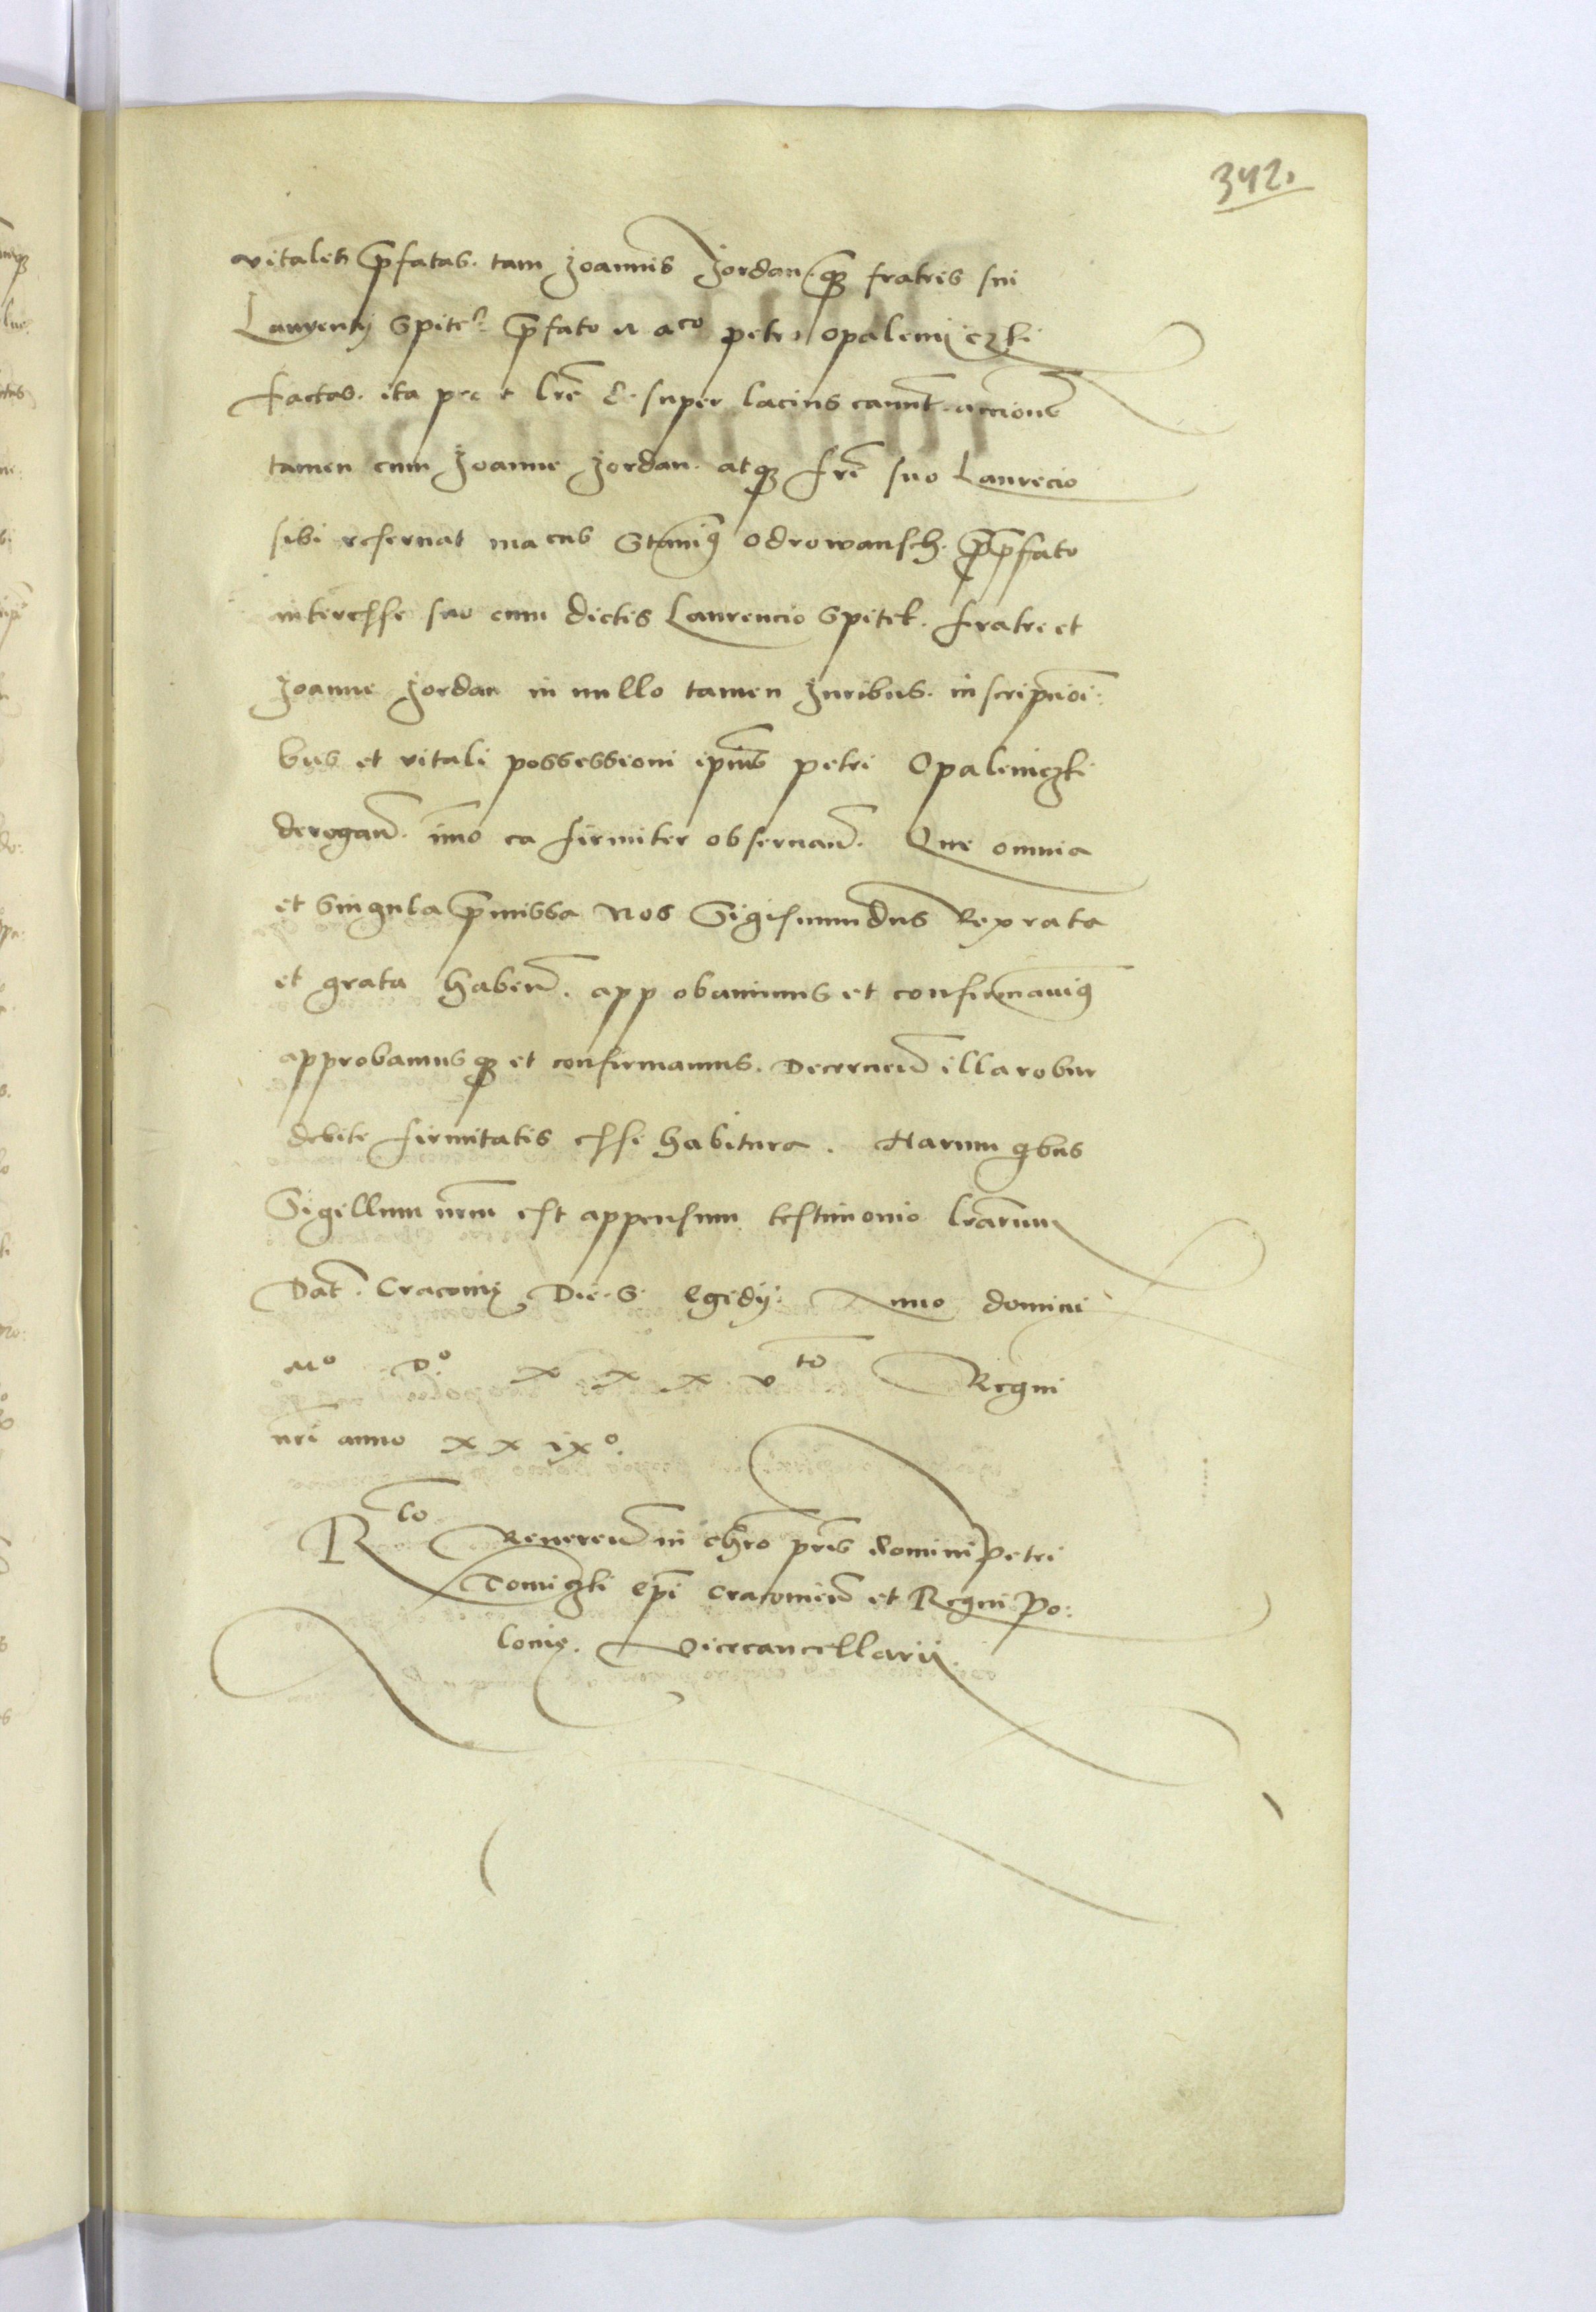 342.
vitalit̃ p̃fatas. tam Joannis Jordan. qꝫ fratris sui
Laurentij Spitek p̃fato M aco petro Opaleniczki
factas. ita pro t lr̃e de super lacius canunt. acciones̃
tamen cum Joanne Jordan. atqꝫ fr̃e suo Laurẽcio
sibi reseruat ma cus Stanisꝰ Odrowansch. p̃ p̃fato
interesse suo cum dictis Laurencio Spitek. fratre et
Joanne Jordan in nullo tamen Juribus. inscripcioĩ:
bus et vitali possessioni ip̃ius petri Opaleniczki
derogañ. imo ea firmiter obseruañ. Que omnia
et Singula p̃missa Nos Sigismundus Rex rata
et grata habeñ. app obauimus et confirmauimꝰ
approbamus qꝫ et confirmamus. Decerneñ illa robur
debite firmitatis esse habitura. Harum qbus
Sigillum nr̃m est appensum testimonio lr̃arum
Dat̃. Cracouię Die. S. Egidij. Anno domini
Mo Do. x x x vto Regni
nr̃i anno x x ixo.
Rco Reuereñ in chr̃o pr̃is domini Petri
Tomiczki ep̃i Cracouieñ et Regni Po:
lonię. Vicecancellarij.